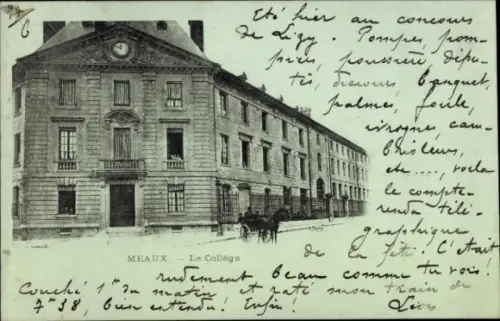 Eté hier au concours
de Lizy. Pompes, pom-
piers, poussière, dépu-
tés, discours, banquet,
palmes, foule,
ivrognes, cam-
brioleurs,
etc...., voila
le compte-
rendu télé-
graphique
de la fête. C'était
MEAUX. - Le Collège
rudement beau comme tu vois!
Couché 1h du matin et raté mon train de
7h38, bien entendu! Enfin!
Léon